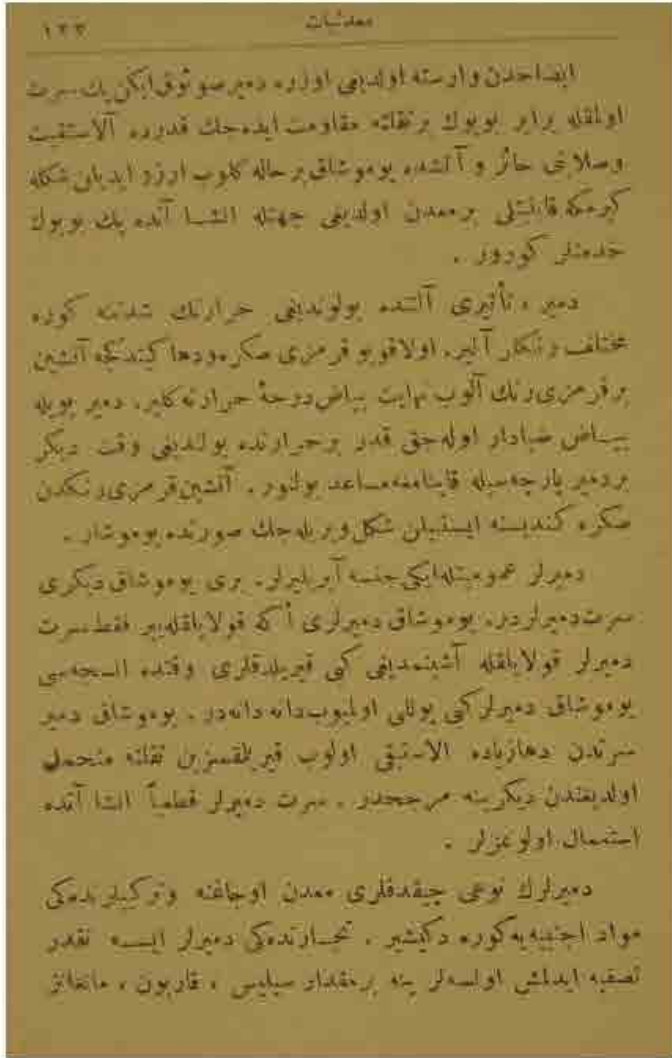 معدنیات ١٣٣
ایضاحدن وارسته اولدیغی اوزره دمیر صوئوق ایکن پك سرت
اولمقله برابر بویوك بر ثقلته مقاومت ایده‌جك قدرده آلاستقیت
وصلابتی حائز و آتشده یوموشاق بر حاله كلوب ارزو ایدیلن شكله
كیرمكه قابلیتلی بر معدن اولدیغی جهتله انشا آتده پك بویوك
خدمتلر كورور .
دمیر ، تأثیری آلتنده بولوندیغی حرارتك شدتنه كوره
مختلف رنكلر آلیر. اولا قویو قرمزی صكره و دها كیتدكجه آتشین
بر قرمزی رنك آلوب نهایت بیاض درجهٔ حرارته كلیر. دمیر بویله
بیاض ضیادار اوله‌جق قدر بر حرارتده بولندیغی وقت دیكر
بر دمیر پارچه‌سیله قاینامغه مساعد بولنور . آتشین قرمزی رنكدن
صكره كندیسنه ایستنیلن شكل ویریله‌جك صورتده یوموشار .
دمیرلر عمومیتله ایكی جنسه آیریلیرلر. بری یوموشاق دیكری
سرت دمیرلردر. یوموشاق دمیرلری أكه قولایلقله‌ییر فقط سرت
دمیرلر قولایلقله آشینمدیغی كبی قیریلدقلری وقتده النسجه‌سی
یوموشاق دمیرلر كبی یوللی اولمیوب دانه دانه‌در . یوموشاق دمیر
سرتدن دها زیاده الاستیقی اولوب قیریلمقسزین ثقلته متحمل
اولدیغندن دیكرینه مرجحدر . سرت دمیرلر قطعیاً انشا آتده
استعمال اولونمزلر .
دمیرلرك نوعی چیقدقلری معدن اوجاغنه وتركیبلرنده‌كی
مواد اجنبیه‌یه كوره دكیشیر . تجارتده‌كی دمیرلر ایسه نقدر
تصفیه ایدلمش اولسه‌لر ینه بر مقدار سیلیس ، قاربون ، مانغانز